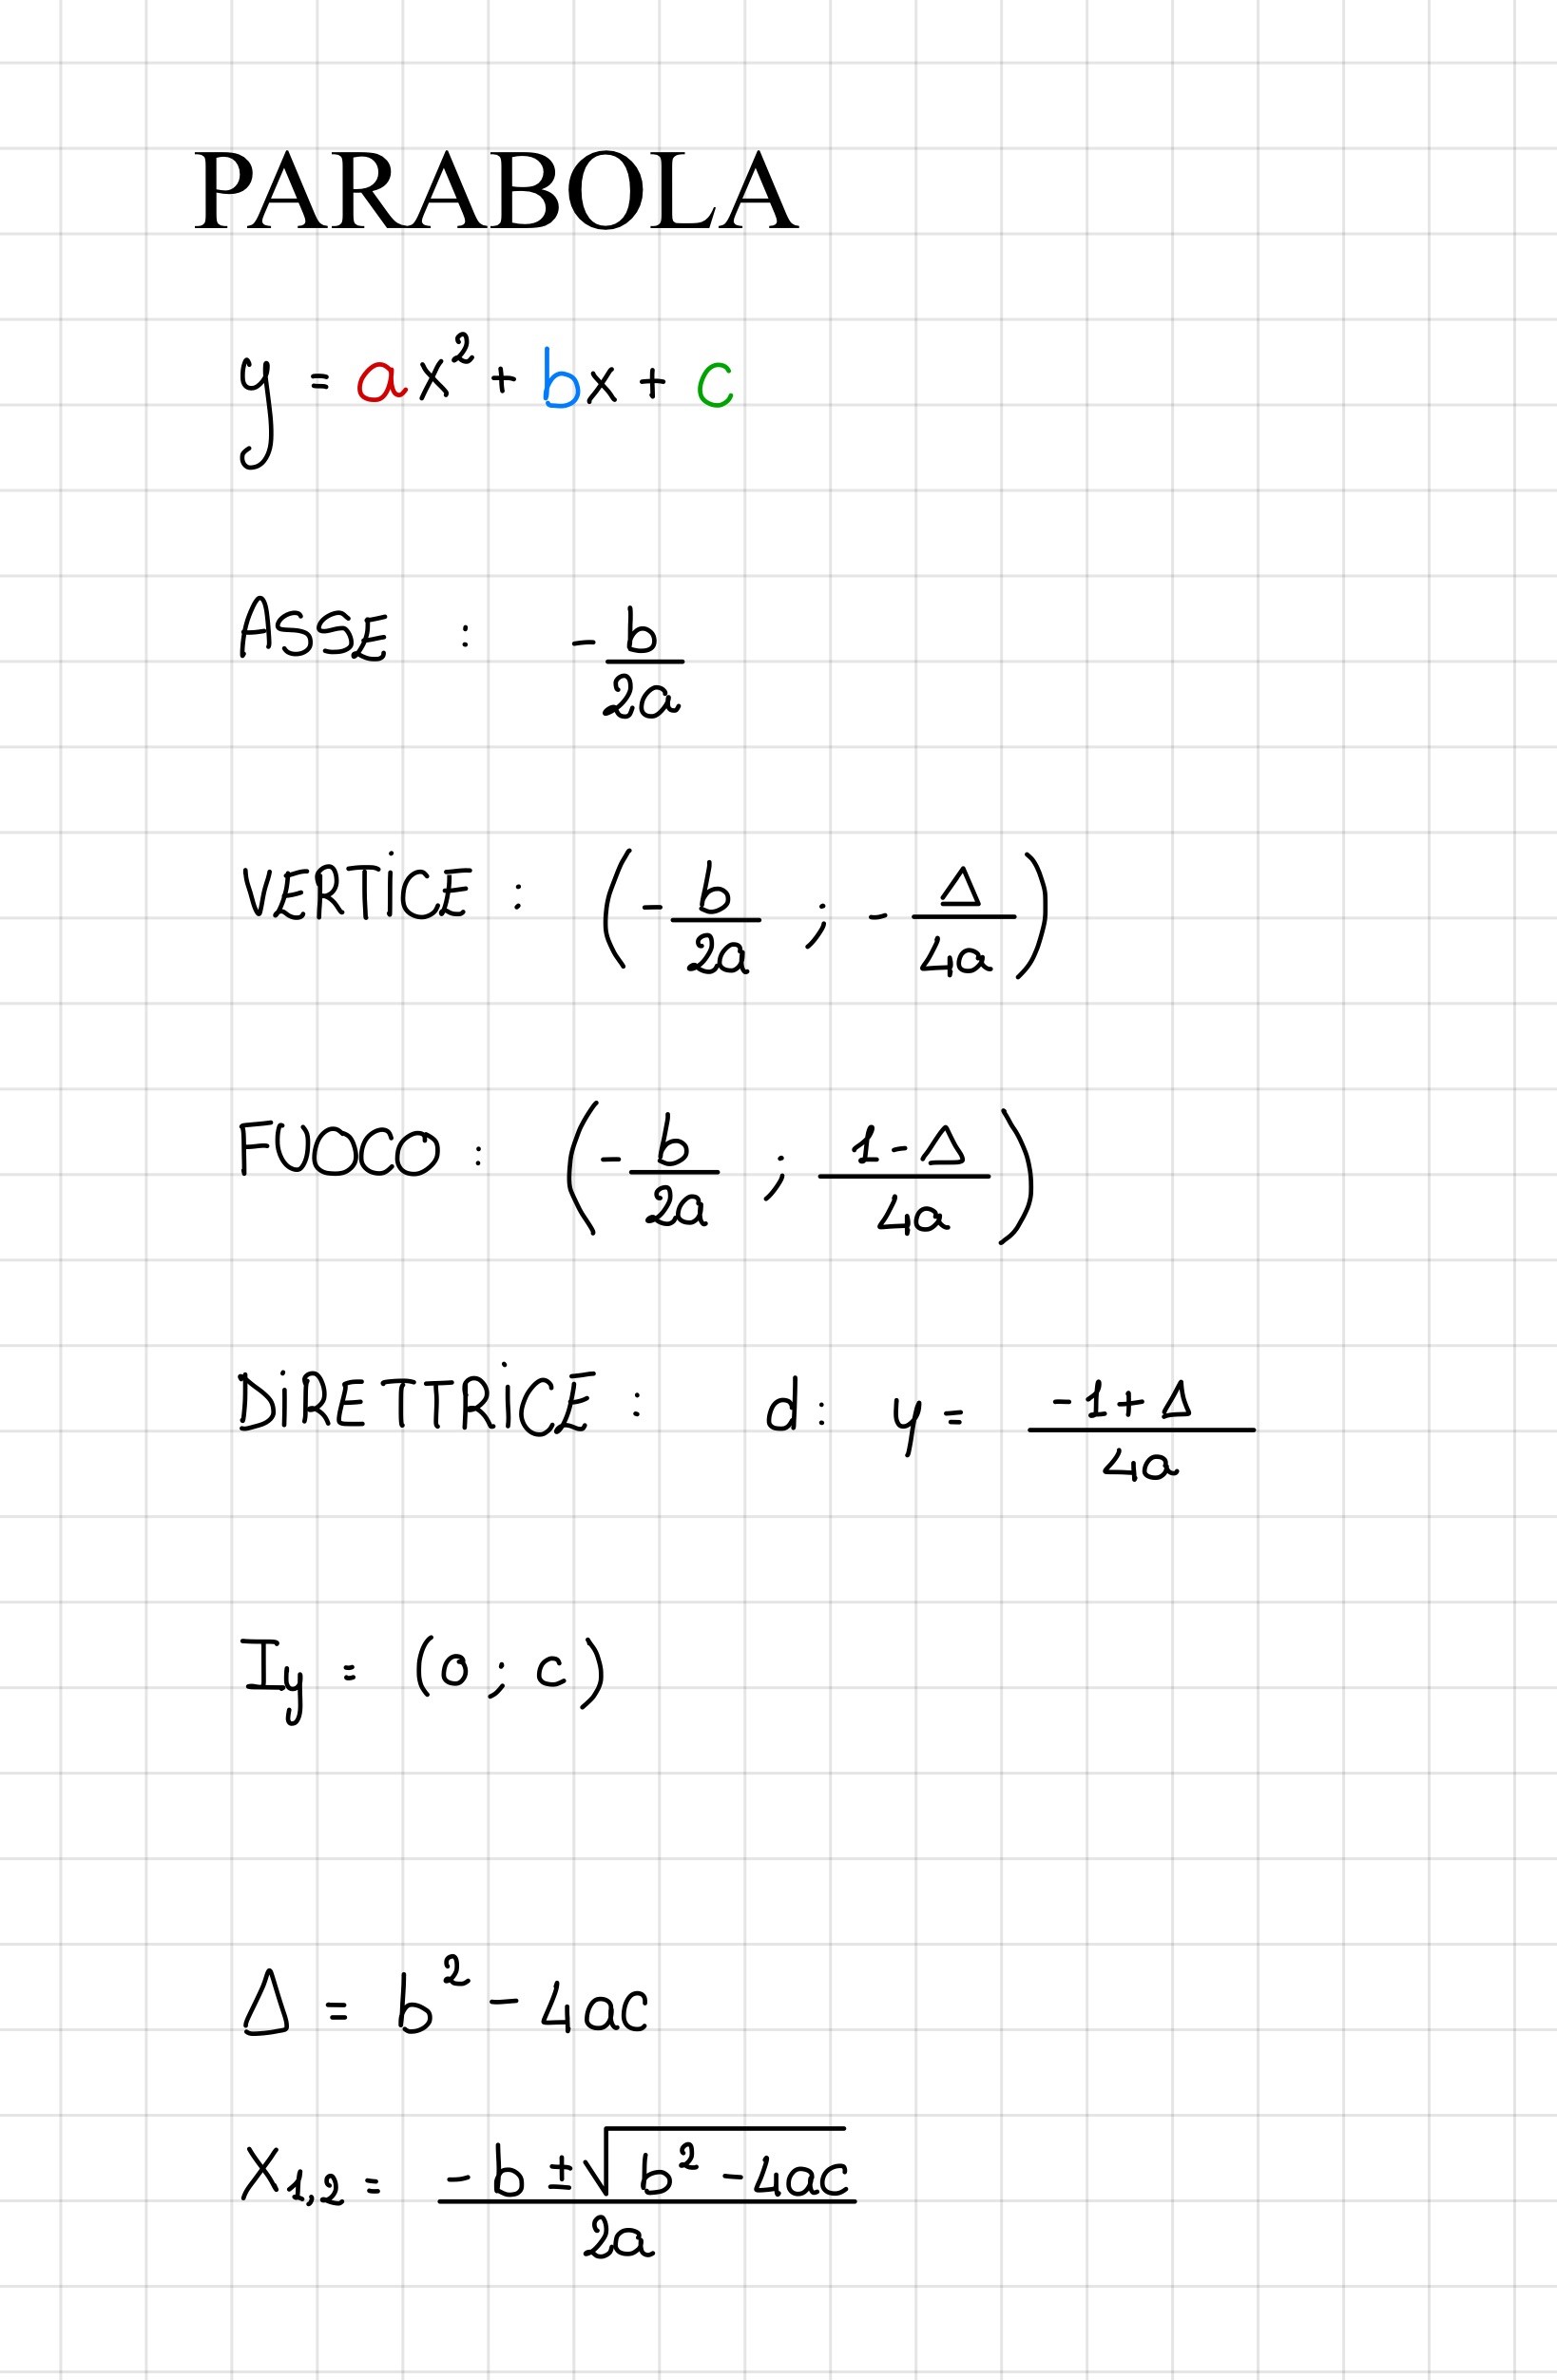 PARABOLA
y = ax² + bx + c
ASSE : -b/2a
VERTICE : (-b/2a ; -Δ/4a)
FUOCO : (-b/2a ; 1-Δ/4a)
DIRETTRICE : d: y = -1+Δ/4a
Iy = (0 ; c)
Δ = b² - 4ac
X1,2 = -b ± √b² - 4ac/2a